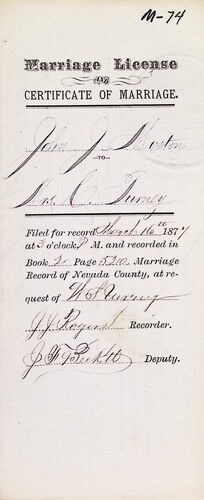 M-74
Marriage License
AND
CERTIFICATE OF MARRIAGE.
John J. Morton
—TO—
Mrs. C. Turney
Filed for record March 16th 1877
at 3 o'clock P M. and recorded in
Book 2 Page 520, Marriage
Record of Nevada County, at re-
quest of
J. J. Rogers Recorder.
J F Beckett Deputy.